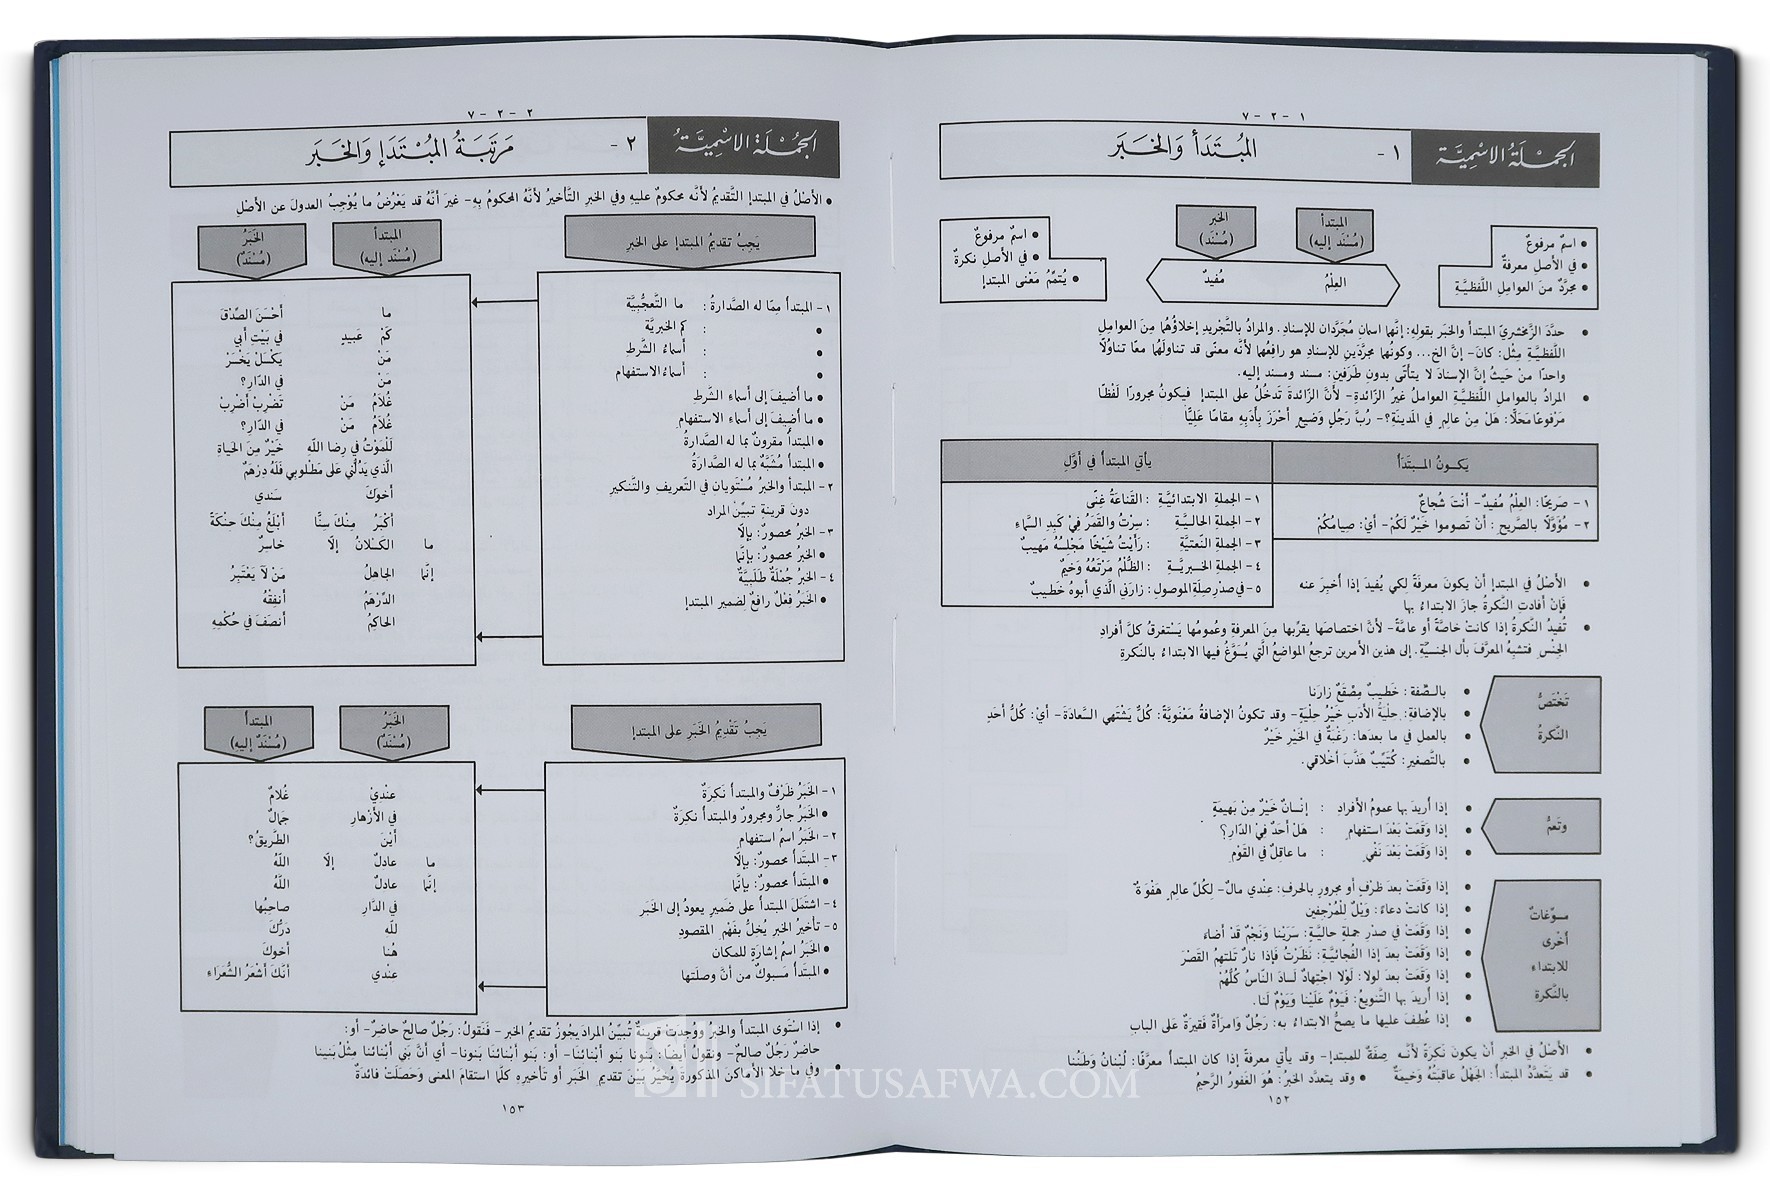 ١ - ٢ - ٧
الجُمْلَةُ الاسْمِيَّة
١ - المُبْتَدَأ وَالخَبَر
المبتدأ
(مُسْنَد إليه)
الخبر
(مُسْنَد)
• اسمٌ مرفوعٌ
• في الأصلِ معرفةٌ
• مجرَّدٌ منَ العوامِلِ اللَّفظيَّةِ
العِلمُ مُفيدٌ
• اسمٌ مرفوعٌ
• في الأصلِ نكرةٌ
• يُتمِّمُ مَعْنى المبتدإ
• حدَّدَ الزَّمخشريّ المبتدأ والخبَر بقولهِ: إنَّهما اسمانِ مُجَرَّدان للإسنادِ. والمرادُ بالتَّجريدِ إخلاؤُهُما مِنَ العوامِلِ
اللَّفظيَّةِ مِثْل: كانَ- إنَّ الخ... وكونُهما مجرَّدَينِ للإسنادِ هو رافعُهما لأنَّه معنًى قد تناولَهُما معًا تناوُلًا
واحدًا منْ حَيثُ إنَّ الإسنادَ لا يتأتَّى بدونِ طَرَفَينِ: مسند ومسند إليه.
• المرادُ بالعواملِ اللَّفظيَّةِ العواملُ غَيرُ الزّائدةِ- لأنَّ الزّائدةَ تَدخُلُ على المبتدإ فيكونُ مجرورًا لفظًا
مَرفوعًا مَحَلًّا: هَلْ مِنْ عالِمٍ في المَدينَةِ؟- رُبَّ رَجُلٍ وَضيعٍ أحْرَزَ بِأدَبِهِ مقامًا عَلِيًّا
يَكُونُ المُبتَدَأ
١- صَريحًا: العِلْمُ مُفيدٌ- أنْتَ شُجاعٌ
٢- مُؤَوَّلًا بالصَّريحِ: أنْ تَصوموا خَيْرٌ لَكُمْ- أيْ: صِيامُكُمْ
يأتي المبتدأ في أوَّلِ
١- الجملةِ الابتدائيَّةِ : القَناعَةُ غِنًى
٢- الجملةِ الحاليَّةِ : سِرْتُ والقَمَرُ فِيْ كَبِدِ السَّماءِ
٣- الجملةِ النَّعتيَّةِ : رَأيْتُ شَيْخًا مَجْلِسُهُ مَهيبٌ
٤- الجملةِ الخبريَّةِ : الظُّلْمُ مَرْتَعُهُ وَخيمٌ
٥- في صدْرِ صِلَةِ الموصولِ : زارَني الَّذي أبوهُ خَطيبٌ
• الأصْلُ في المبتدإ أنْ يكونَ معرفَةً لكي يُفيدَ إذا أُخبِرَ عنه
فَإنْ أفادتِ النَّكرةُ جازَ الابتداءُ بها
• تُفيدُ النَّكرةُ إذا كانتْ خاصَّةً أو عامَّةً- لأنَّ اختصاصَها يقرِّبها مِنَ المعرفةِ وعُمومُها يَستغرِقُ كلَّ أفرادِ
الجِنْسِ فتشبِهُ المعرَّفَ بأل الجنسيَّةِ. إلى هذين الأمرين ترجعُ المواضعُ الَّتي يُسَوَّغُ فيها الابتداءُ بالنَّكرةِ
تَخْتَصُّ
النَّكرةُ
• بالصِّفة: خَطيبٌ مِصْقَعٌ زارَنا
• بالإضافةِ: حِلْيَةُ الأدَبِ خَيْرُ حِلْيَةٍ- وقد تكونُ الإضافةُ مَعْنَويَّةً: كُلٌّ يَشْتَهي السَّعادَةَ- أيْ: كُلُّ أحَدٍ
• بالعملِ في ما بعدَها: رَغْبَةٌ في الخَيْرِ خَيْرٌ
• بالتَّصغيرِ: كُتَيِّبٌ هَذَّبَ أخْلاقي.
وتَعمُّ
• إذا أُريدَ بها عمومُ الأفرادِ : إنْسانٌ خَيْرٌ مِنْ بَهيمَةٍ
• إذا وَقَعَتْ بَعْدَ استفهامٍ : هَلْ أحَدٌ فيْ الدّارِ؟
• إذا وَقَعَتْ بَعْدَ نَفْيٍ : ما عاقِلٌ في القَوْمِ
مسوِّغاتٌ
أُخْرى
للابتداءِ
بالنَّكرة
• إذا وَقَعَتْ بعدَ ظرْفٍ أو مجرورٍ بالحرفِ: عِنْدي مالٌ- لِكُلِّ عالِمٍ هَفْوَةٌ
• إذا كانتْ دعاءً: وَيْلٌ لِلْمُرْجِفين
• إذا وقَعَتْ في صدْرِ جملةٍ حاليَّةٍ: سَرَيْنا وَنَجْمٌ قَدْ أضاءَ
• إذا وَقَعَتْ بعدَ إذا الفُجائيَّةِ: نَظَرْتُ فَإذا نارٌ تَلتهِمُ القَصْرَ
• إذا وَقَعَتْ بعدَ لولا: لَوْلا اجْتِهادٌ لَسادَ النّاسُ كُلُّهُمْ
• إذا أُريدَ بها التَّنويعُ: فَيَوْمٌ عَلَيْنا وَيَوْمٌ لَنا.
• إذا عُطِفَ عليها ما يصحُّ الابتداءُ به: رَجُلٌ وَامرَأةٌ فَقيرَةٌ عَلى البابِ
• الأصْلُ في الخبرِ أنْ يكونَ نَكِرَةً لأنَّه صِفَةٌ للمبتدإ- وقد يأتي معرفةً إذا كان المبتدأُ معرَّفًا: لُبْنانُ وَطَنُنا
• قد يَتعدَّدُ المبتدأ: الجَهْلُ عاقبَتُهُ وَخيمَةٌ • وقد يتعدَّد الخبرُ: هُوَ الغَفورُ الرَّحيمُ
١٥٢
٢ - ٢ - ٧
الجُمْلَة الاسْمِيَّة
٢ - مَرتَبَةُ المُبْتَدَإ وَالخَبَر
• الأصْلُ في المبتدإ التَّقديمُ لأنَّه محكومٌ عليهِ وفي الخبرِ التَّأخيرُ لأنَّهُ المحكومُ بِهِ- غيرَ أنَّهُ قد يَعْرُضُ ما يُوْجِبُ العدولَ عنِ الأصْلِ
يَجِبُ تقديمُ المبتدإ على الخَبَرِ
المبتدأ
(مُسْنَد إليه)
الخَبَرُ
(مُسْنَدٌ)
١- المبتدأ مِمّا له الصَّدارةُ : ما التَّعجُّبِيَّة
• : كم الخبريَّة
• : أسماءُ الشَّرط
• : أسماءُ الاستفهام
• ما أُضيفَ إلى أسماءِ الشَّرطِ
• ما أُضيفَ إلى أسماءِ الاستفهامِ
• المبتدأ مقرونٌ بما له الصَّدارةُ
• المبتدأ مُشَبَّهٌ بما له الصَّدارَةُ
٢- المبتدأ والخبرُ مُسْتَويان في التَّعريفِ والتَّنكيرِ
دون قرينةٍ تبيِّن المراد
٣- الخبرُ محصورٌ: بإلّا
• الخبرُ محصورٌ: بإنَّما
٤- الخبَرُ جُمْلَةٌ طَلَبيَّةٌ
• الخَبَرُ فعْلٌ رافعٌ لِضميرِ المبتدإ
ما أحْسَنَ الصِّدْقَ
كَمْ عَبيدٍ في بَيْتِ أبي
مَنْ يَكْسَلْ يَخْسَرْ
مَنْ في الدّارِ؟
غُلامُ مَنْ تَضْرِبْ أضْرِبْ
غُلامُ مَنْ في الدّارِ؟
لَلْمَوْتُ في رِضا اللّهِ خَيْرٌ مِنَ الحَياةِ
الَّذي يَدُلُّني عَلى مَطْلوبي فَلَهُ دِرْهَمٌ
أخوكَ سَندي
أكْبَرُ مِنْكَ سِنًّا أبْلَغُ مِنْكَ حِنْكَةً
ما الكَسْلانُ إلّا خاسِرٌ
إنَّما الجاهلُ مَنْ لا يَعْتَبِرُ
الدِّرْهَمُ أنفِقْهُ
الحاكِمُ أنصَفَ في حُكْمِهِ
يَجِبُ تَقْديمُ الخَبَرِ على المبتدإ
الخَبَرُ
(مُسْنَدٌ)
المبتدأُ
(مُسْنَدٌ إليهِ)
١- الخَبَرُ ظَرْفٌ والمبتدأ نَكِرَةٌ
• الخَبَرُ جارٌّ ومجرورٌ والمبتدأ نكرةٌ
٢- الخَبَرُ اسمُ استفهامٍ
٣- المبتدأ محصورٌ: بإلّا
• المبتدأ محصورٌ: بإنَّما
٤- اشتمَلَ المبتدأ على ضميرٍ يعودُ إلى الخَبَر
٥- تأخيرُ الخبرِ يُخِلُّ بفَهْمِ المقصودِ
• الخَبَرُ اسمُ إشارَةٍ للمكان
• المبتدأ مسبوكٌ من أنَّ وصلَتِها
عِنْدِيْ غُلامٌ
في الأزْهارِ جَمالٌ
أيْنَ الطَّريقُ؟
ما عادلٌ إلّا اللّهُ
إنَّما عادلٌ اللّهُ
في الدّارِ صاحِبُها
للّهِ دَرُّكَ
هُنا أخوكَ
عِنْدي أنَّكَ أشْعَرُ الشُّعَراءِ
• إذا اسْتَوى المبتدأ والخبرُ ووُجِدَتْ قرينةٌ تُبيِّنُ المرادَ يجوزُ تقديمُ الخبر- فَنَقولُ: رَجُلٌ صالحٌ حاضرٌ- أو:
حاضرٌ رَجُلٌ صالحٌ- ونقولُ أيضًا: بَنونا بَنو أبْنائنا- أو: بَنو أبْنائنَا بَنونا- أي أنَّ بَني أبْنائنا مِثْلُ بَنينا
• وفي ما خلا الأماكن المذكورة يُخيَّر بينَ تقديمِ الخبَر أو تأخيرِه كلَّما استقامَ المعنى وَحَصَلَتْ فائدةٌ
١٥٣
SIFATUSAFWA.COM